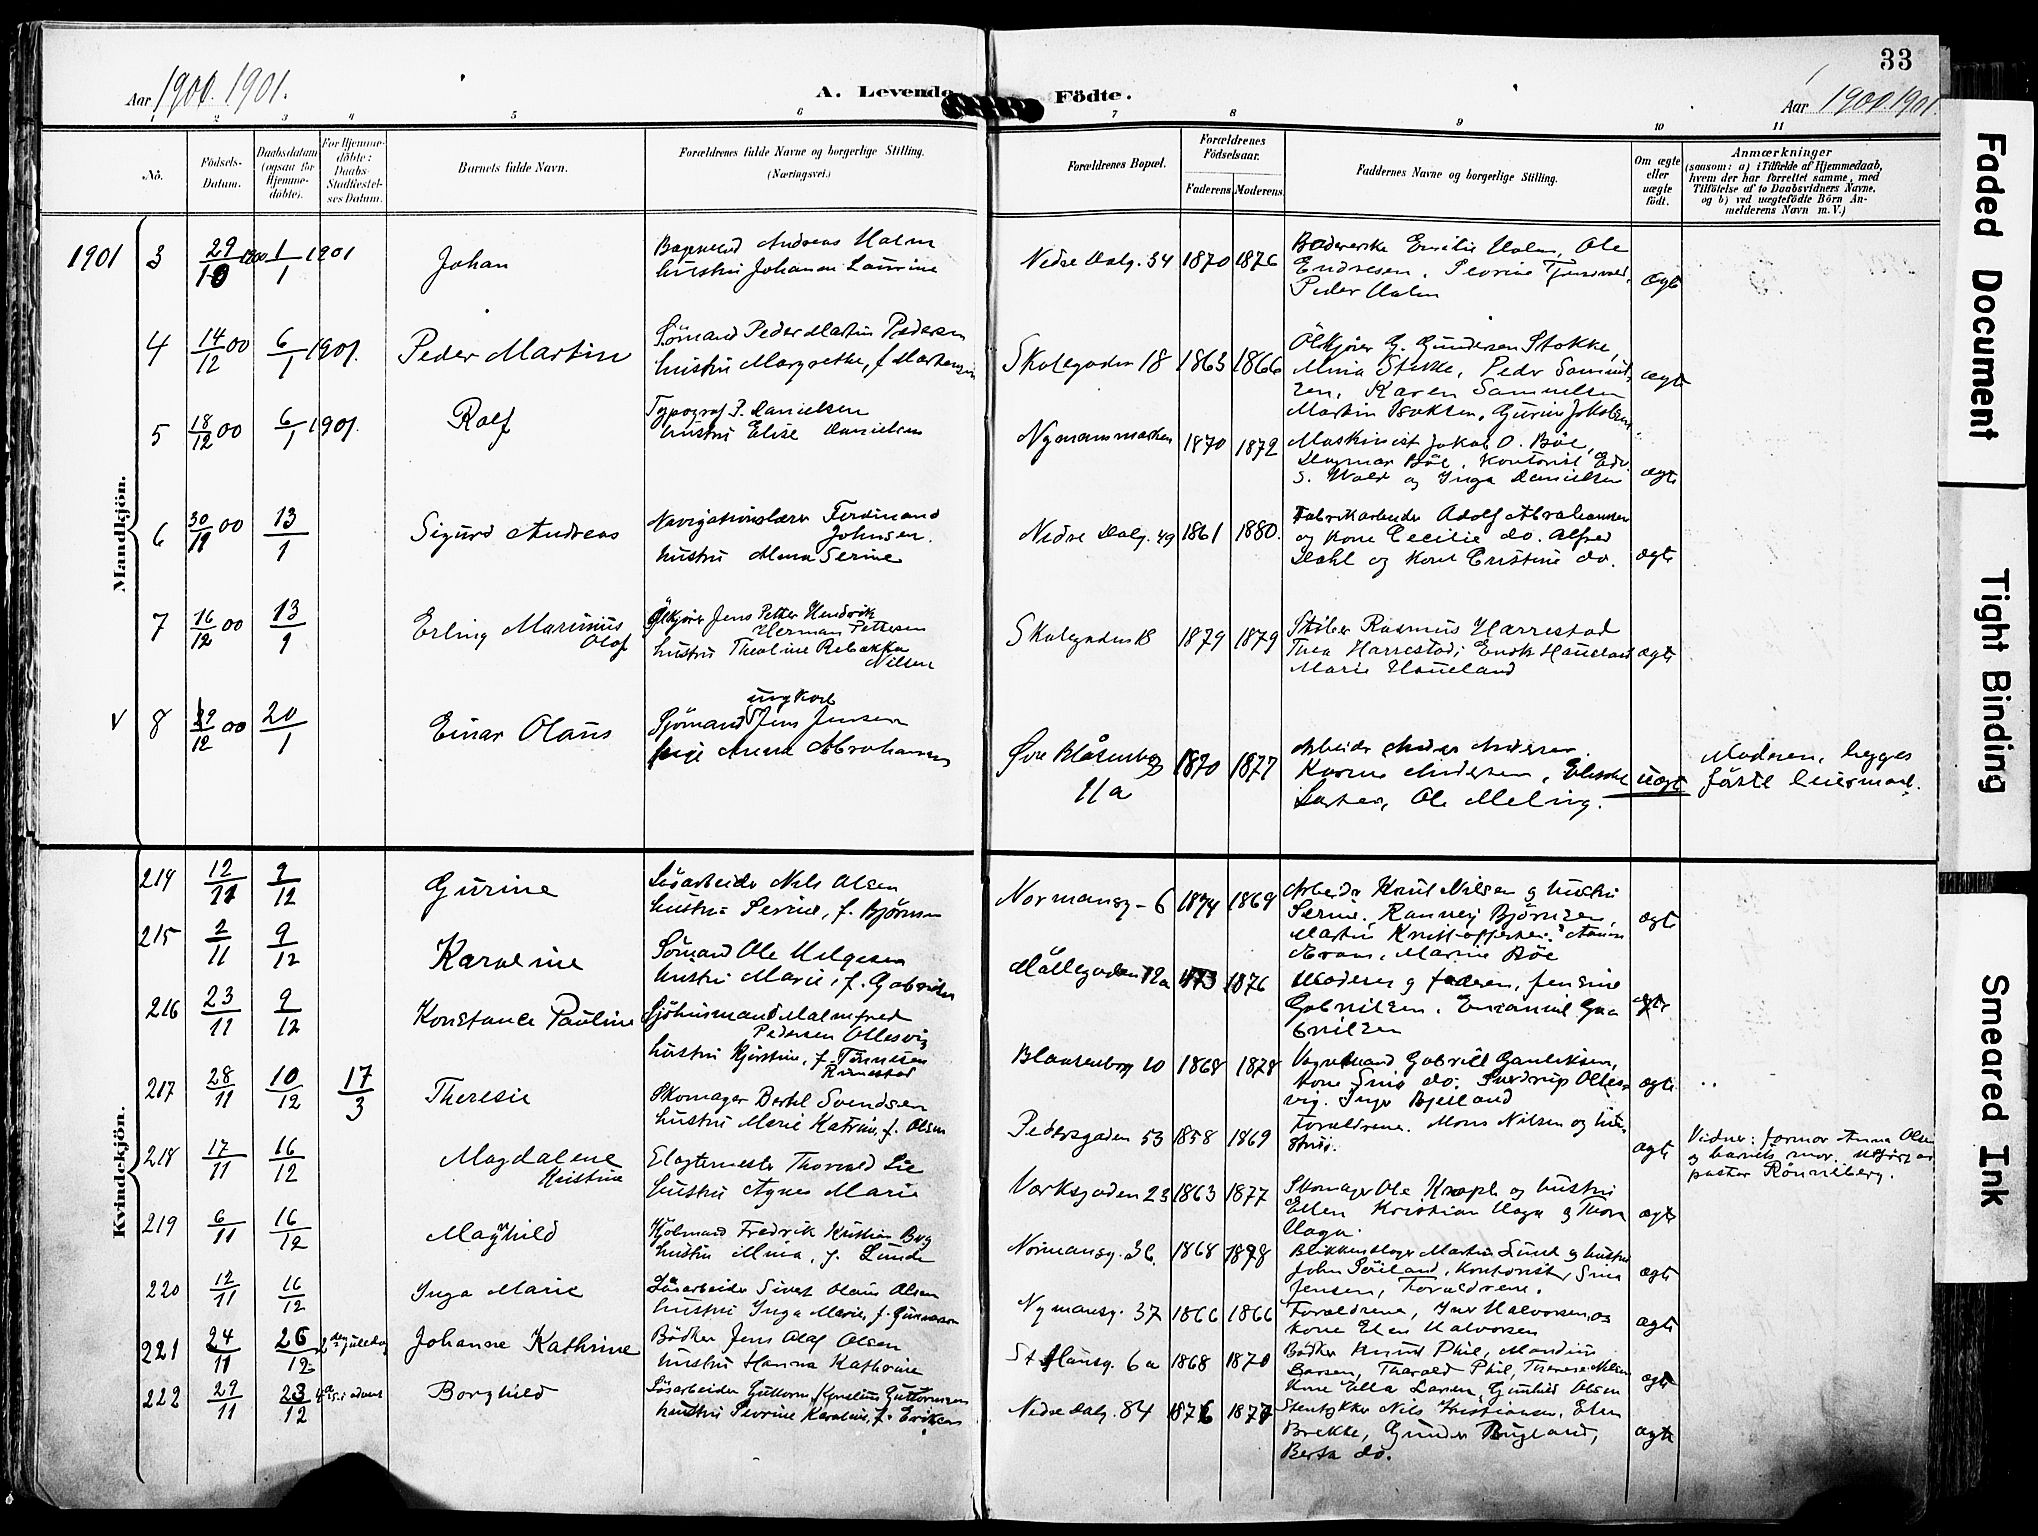 33
Aar 1900. 1901.
A. Levende Födte.
Aar 1900. 1901.
1 2 3 4 5 6 7 8 9 10 11
No.
Födsels-Datum.
Daabsdatum (ogsaa for Hjemmedöbte).
For Hjemmedöbte: Daabs-Stadfæstelses Datum.
Barnets fulde Navn.
Forældrenes fulde Navne og borgerlige Stilling.
(Næringsvei.)
Forældrenes Bopæl.
Forældrenes Födselsaar.
Faderens Moderens
Faddernes Navne og borgerlige Stilling.
Om ægte eller uægte födt.
Anmærkninger
(saasom: a) i Tilfælde af Hjemmedaab,
hvem der har forrettet samme, med
Tilföielse af to Daabsvidners Navne,
og b) ved uægtefödte Börn An-
melderens Navn m. V.)
Mandkjön.
1901 3 29/10 1900 1/1 1901 Johan
Andreas Holm
hustru Johanne Laurine
Nedre Dalg. 34 1870 1876
Emilie Holm, Ole
Endresen,
Peder Holm
ægte
4 14/12 00 6/1 1901. Peder Martin
Sömand Peder Martin Pedersen
hustru Margrethe, f. Martensen
Skolegaden 18 1863 1866
Ölkjörer G. Gundersen Stokke,
Mina Stokke, Peder Samuel-
sen, Karen Samuelsen
ægte
5 18/12 00 6/1 1901. Rolf
Typograf P. Danielsen
hustru Elise Danielsen
Nymansmarken 1870 1872
Martin Isaksen, Gurine Jakobsen
Maskinist Jakob O. Böe,
Dagmar Böe, Kontorist Edv.
S. Wold og Inga Danielsen
ægte
6 30/11 00 13/1 Sigurd Andreas
Navigationslærer Ferdinand
Johnsen.
hustru Mena Serine
Nedre Dalg. 49 1861 1880.
Fabrikarbeider Adolf Abrahamsen
og kone Cecilie do. Alfred
Dahl og kone Cristine do.
ægte
7 16/12 00 13/1 Erling Marinius
Olaf
Ölkjörer Jens Petter Hendrik
Herman Pettersen
hustru Theoline Rebakka
Nilsen
Skolegaden 18 1879 1879
Stiber Rasmus Harrestad
Thea Harrestad; Enok Haueland
Marie Haueland
ægte
V 8 29/12 00 20/1 Einar Olaus
ungkarl
Sjömand Jens Jensen
pige Anna Abrahamsen
Øvre Blåsenborg
11a 1870 1877
Arbeider Anders Andersen.
Karine Andersen,
Ole Meling.
uægte
Moderen, begges
förste leiermaal.
Kvindekjön.
214 12/11 9/12 Gurine
Lösarbeider Nils Olsen
hustru Serine, f. Björnsen
Normansg- 6 1874 1869
Arbeider Knut Nilsen og hustru
Serine. Rannveig Björnsen,
Martin
Marine Böe
ægte
215 2/11 9/12 Karoline
Sömand Ole Helgesen
hustru Marie, f. Gabrielsen
Möllegaden 12a 1873 1876
Moderen og faderen, Jensine
Gabrielsen. Emanuel Ga-
brielsen
ægte
216 23/11 9/12 Konstance Pauline
Sjöhusmand Malmfred
Pedersen Ollesvig
hustru Kjerstine, f. Tönnesen
Rimestad
Blaasenborg 10 1868 1878
Vognmand Gabriel Gauliksen,
kone Sina do. Sverdrup Olles-
vig. Inga Bjelland
ægte
217 28/11 10/12 17/3 Theresie
Skomager Bertel Svendsen
hustru Marie Katrine, f. Olsen
Pedersgaden 53 1858 1869
Forældrene. Mons Nilsen og hus-
tru.
ægte
Vidner: farmor Anna Olsen
og barnets mor. Utført av
pastor Rönneberg.
218 17/11 16/12 Magdalene
Kristine
Slagtermester Thorvald Lie
hustru Agnes Marie
Verksgaden 23 1863 1877
Skomager Ole Knaph og hustru
Ellen Kristian Haga og Thora
Haga.
ægte
219 6/11 16/12 Maynhild
Kjölmand Fredrik Kristian Berg
hustru Mina, f. Lunde
Normansg. 36 1868 1878
Blikkenslager Martin Lund og hustru
John Söiland, Kontorist Sina
Jensen, Forældrene.
ægte
220 12/11 16/12 Inga Marie
Lösarbeider Sivert Olaus Olsen
hustru Inga Marie, f. Gunnarson
Nymansg. 37 1866 1866
Forældrene, Iver Halvorsen og
kone Elen Halvorsen
ægte
221 24/11 26/12 2den juledag Johanne Kathrine
Bödker Jens Olaf Olsen
hustru Hanna Kathrine
St Hansg. 6a 1868 1870
Bödker Knud Phil, Mandius
Larsen, Tharald Phil, Therese Nilsen
Kone Ella Larsen, Gunhild Olsen
ægte
222 29/11 23/12 4de S. i advent Borghild
Lösarbeider Guttorm Kornelius Guttormsen
hustru Severine Karoline, f. Eriksen
Nedre Dalg. 84 1876 1877
Stentykker Nils Kristiansen, Elen
Brekke, Gunder Bugland,
Berta do.
ægte
Faded Document
Tight Binding
Smeared Ink